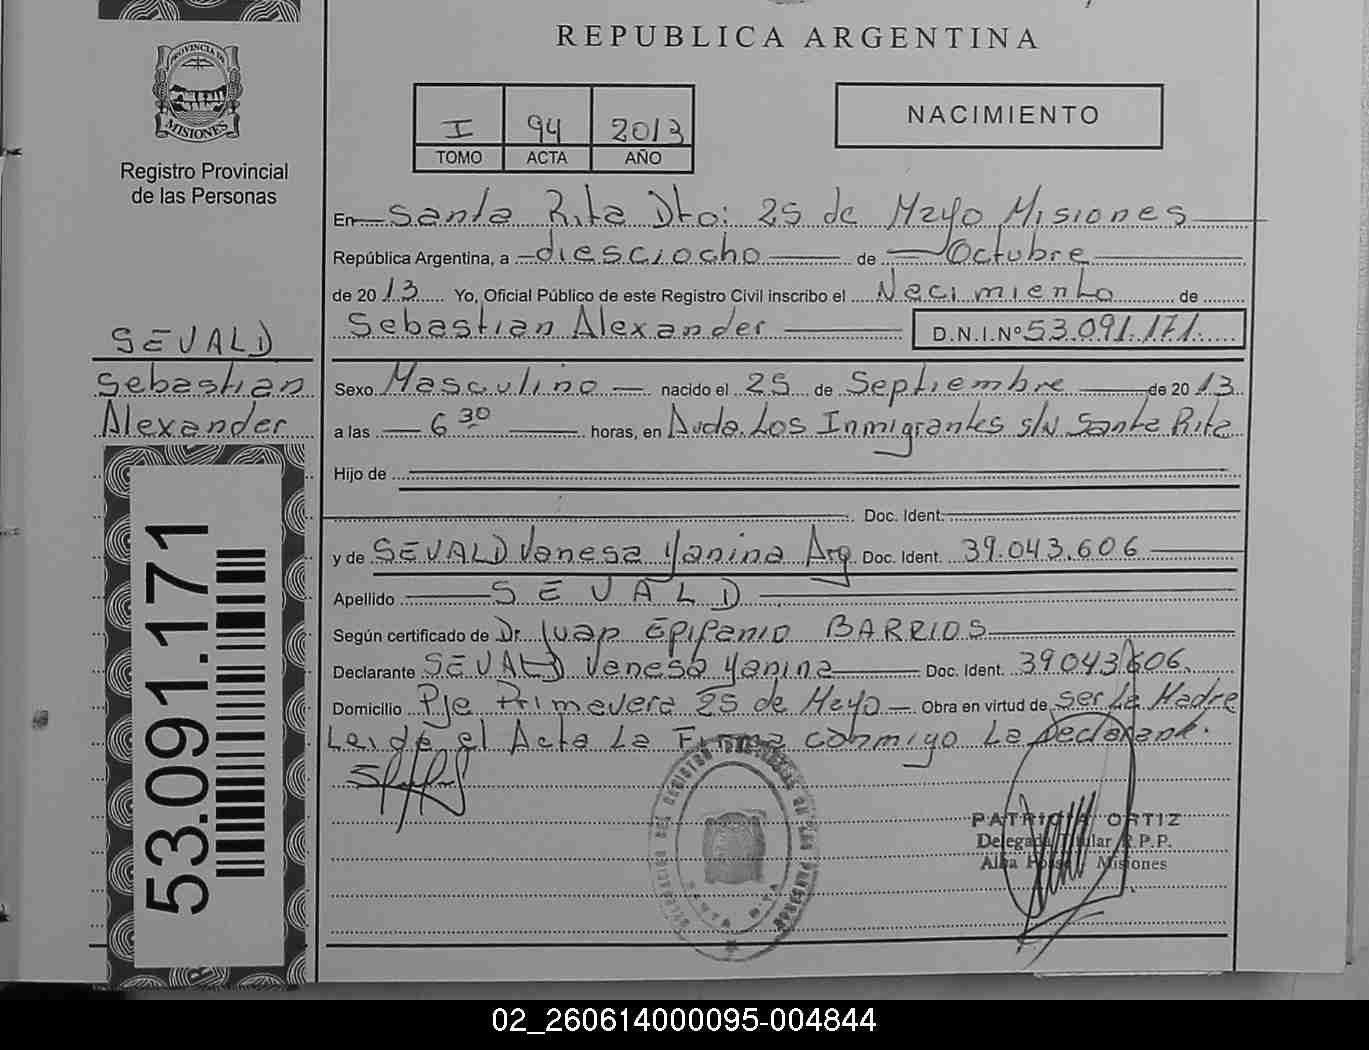 REPUBLICA ARGENTINA
PROVINCIA DE
MISIONES
Registro Provincial
de las Personas
I 94 2013
TOMO ACTA AÑO
NACIMIENTO
En Santa Rita Dto: 25 de Mayo Misiones
República Argentina, a diesciocho de Octubre
de 2013 Yo, Oficial Público de este Registro Civil inscribo el Nacimiento de
Sebastian Alexander D.N.I.Nº 53.091.171
SEVALD
Sebastian
Alexander
Sexo Masculino nacido el 25 de Septiembre de 2013
a las 6 30 horas, en Avda. Los Inmigrantes s/N Santa Rita
Hijo de
Doc. Ident.
y de SEVALD Vanesa Yanina Arg Doc. Ident. 39.043.606
Apellido SEVALD
Según certificado de Dr. Juan Epifanio BARRIOS
Declarante SEVALD Vanesa Yanina Doc. Ident. 39.043.606.
Domicilio Pje Primavera 25 de Mayo Obra en virtud de ser La Madre
Leida el Acta La Firma conmigo La Declarante.
53.091.171
PATRICIA ORTIZ
Delegada Titular R.P.P.
Alba Posse - Misiones
02_260614000095-004844